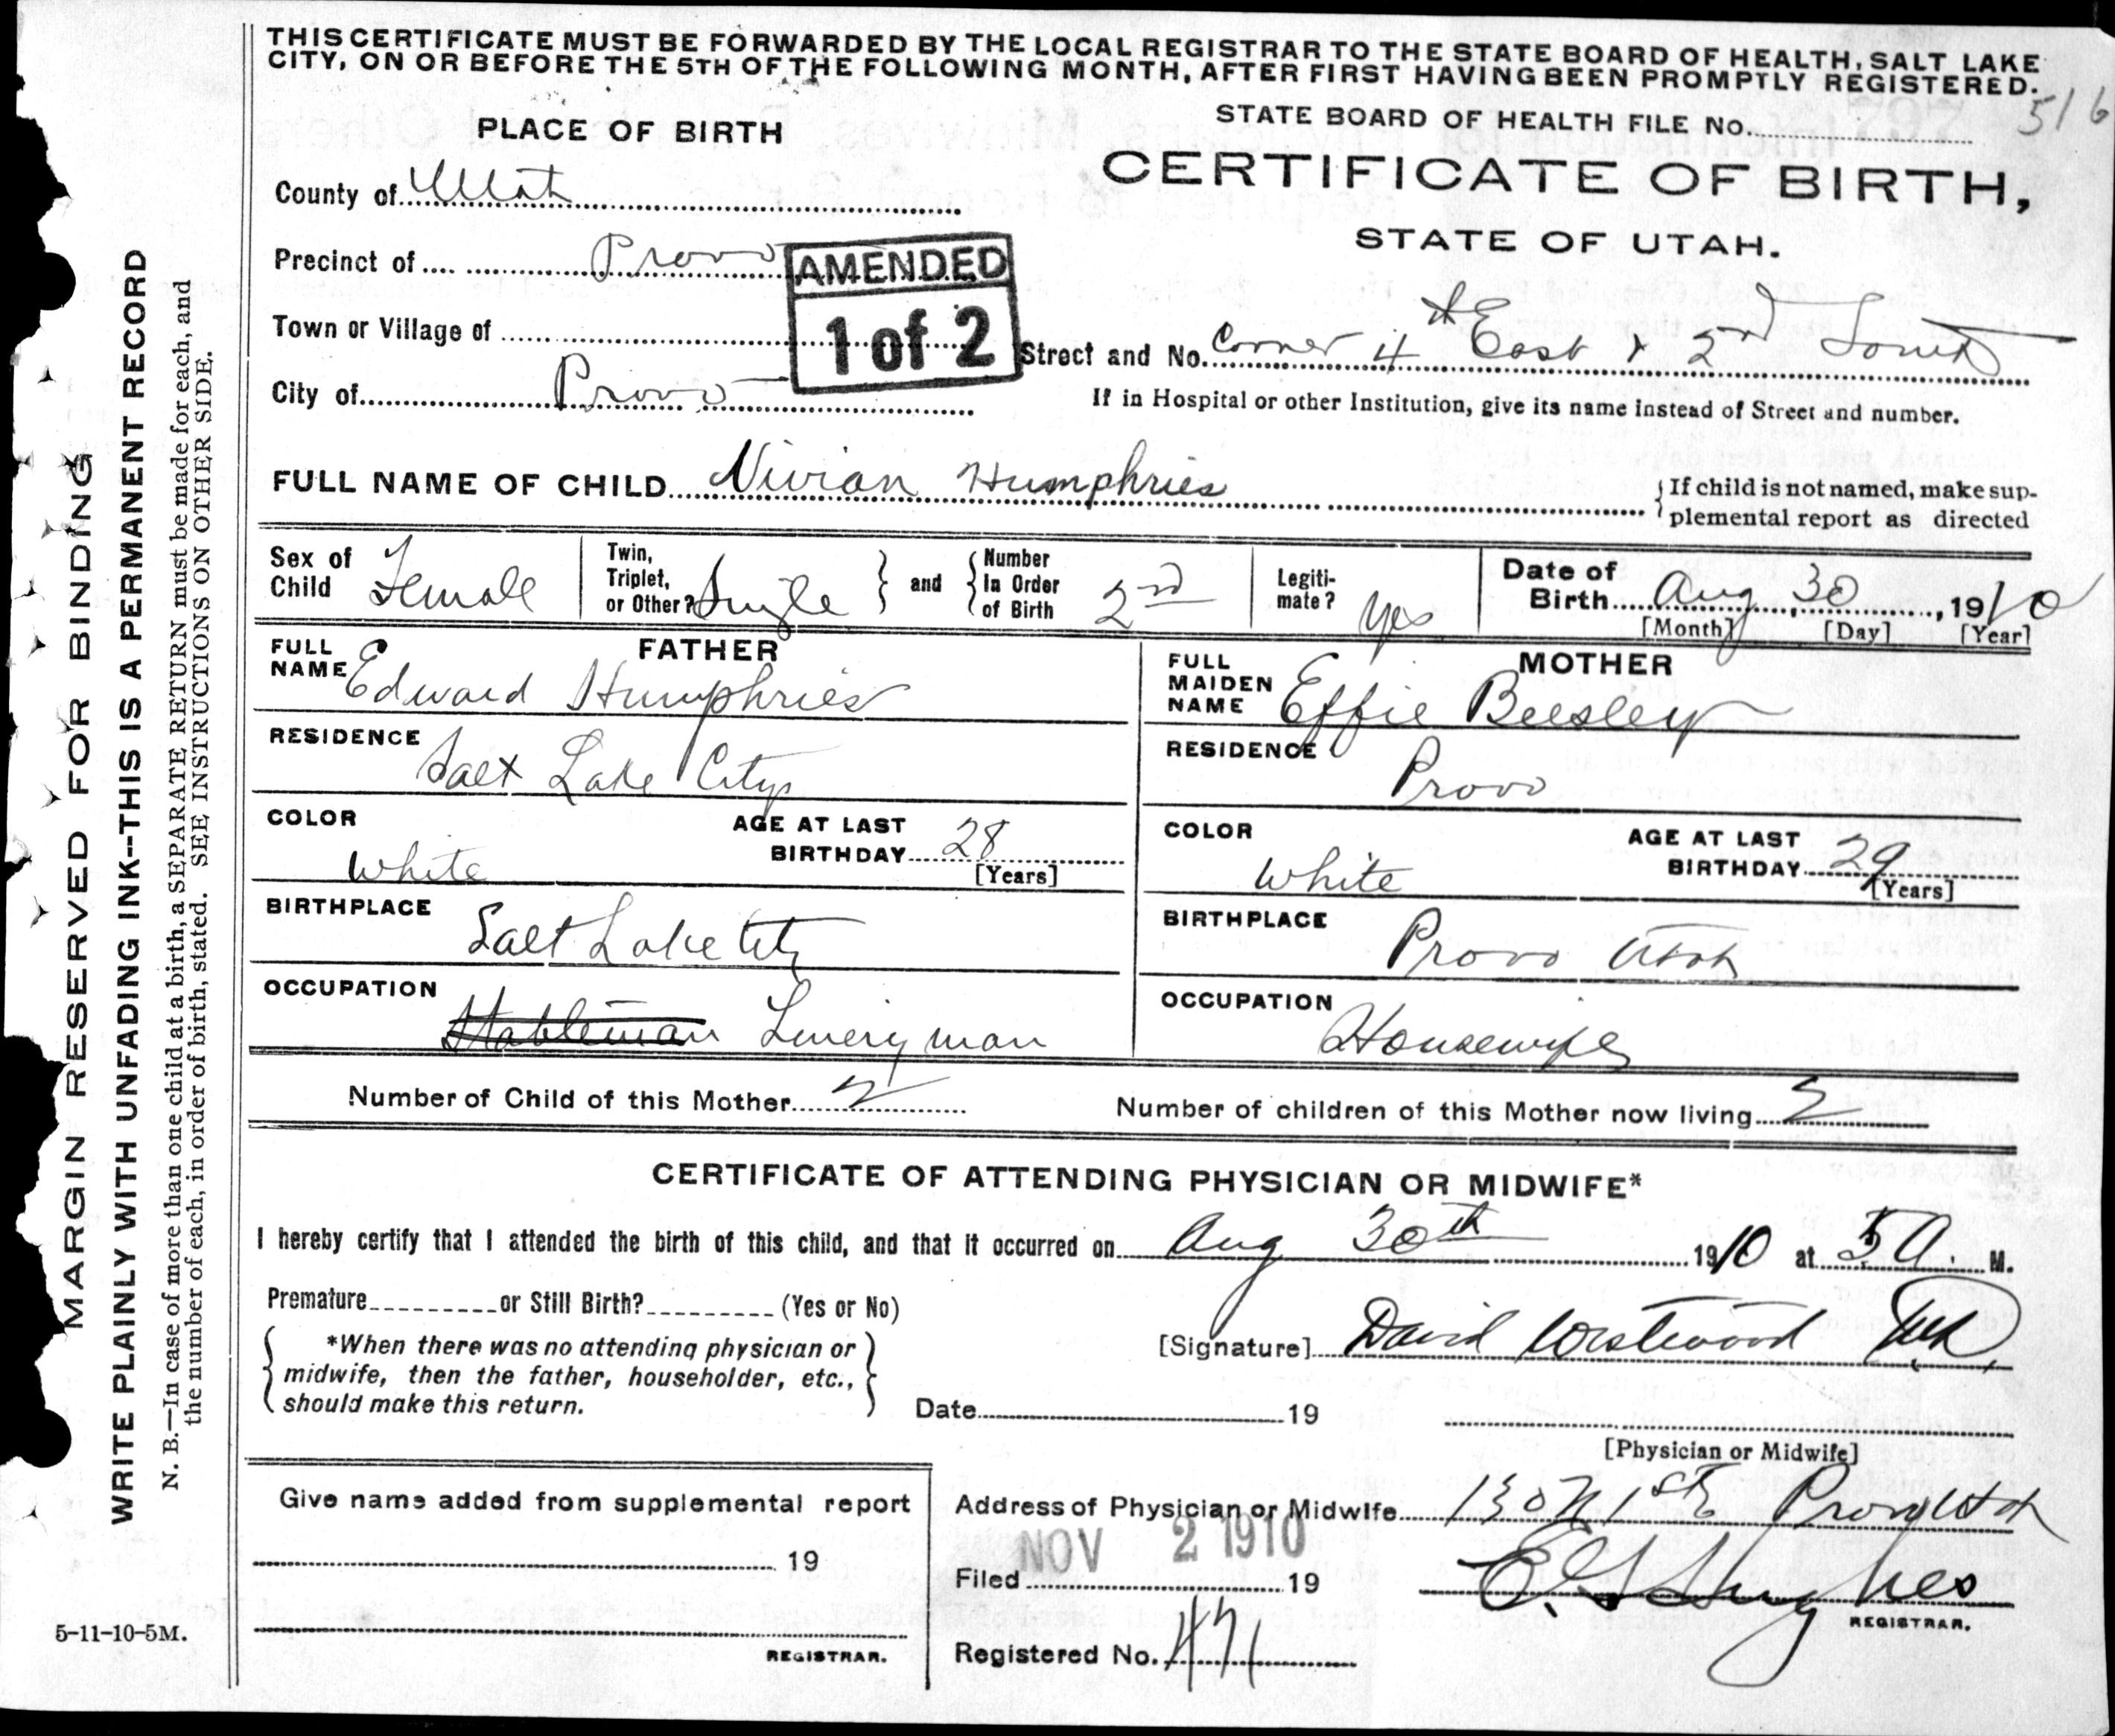 THIS CERTIFICATE MUST BE FORWARDED BY THE LOCAL REGISTRAR TO THE STATE BOARD OF HEALTH, SALT LAKE
CITY, ON OR BEFORE THE 5TH OF THE FOLLOWING MONTH, AFTER FIRST HAVING BEEN PROMPTLY REGISTERED.
516
STATE BOARD OF HEALTH FILE No.
PLACE OF BIRTH
CERTIFICATE OF BIRTH,
STATE OF UTAH.
County of Utah
Precinct of Provo
AMENDED
1 of 2
Town or Village of
Street and No. Corner 4th East & 2nd South
City of Provo
If in Hospital or other Institution, give its name instead of Street and number.
FULL NAME OF CHILD Vivian Humphries
If child is not named, make sup-
plemental report as directed
Sex of Child Female
Twin, Triplet, or Other? Single
and Number In Order of Birth 2nd
Legiti-mate? Yes
Date of Birth Aug, 30, 1910
[Month] [Day] [Year]
FATHER
FULL NAME Edward Humphries
RESIDENCE Salt Lake City
COLOR White
AGE AT LAST BIRTHDAY 28
[Years]
BIRTHPLACE Salt Lake City
OCCUPATION Stableman Liveryman
MOTHER
FULL MAIDEN NAME Effie Beesley
RESIDENCE Provo
COLOR White
AGE AT LAST BIRTHDAY 29
[Years]
BIRTHPLACE Provo Utah
OCCUPATION Housewife
Number of Child of this Mother 2
Number of children of this Mother now living 2
CERTIFICATE OF ATTENDING PHYSICIAN OR MIDWIFE*
I hereby certify that I attended the birth of this child, and that it occurred on Aug 30th 1910 at 5 A. M.
Premature or Still Birth? (Yes or No)
*When there was no attending physician or
midwife, then the father, householder, etc.,
should make this return.
[Signature] David Westwood MD,
Date 19
[Physician or Midwife]
Give name added from supplemental report
19
REGISTRAR.
Address of Physician or Midwife 130 N 1st E Provo Utah
NOV 2 1910
Filed 19
E. G. Hughes
REGISTRAR.
Registered No. 471
5-11-10-5M.
MARGIN RESERVED FOR BINDING
WRITE PLAINLY WITH UNFADING INK--THIS IS A PERMANENT RECORD
N. B.—In case of more than one child at a birth, a SEPARATE RETURN must be made for each, and
the number of each, in order of birth, stated. SEE INSTRUCTIONS ON OTHER SIDE.